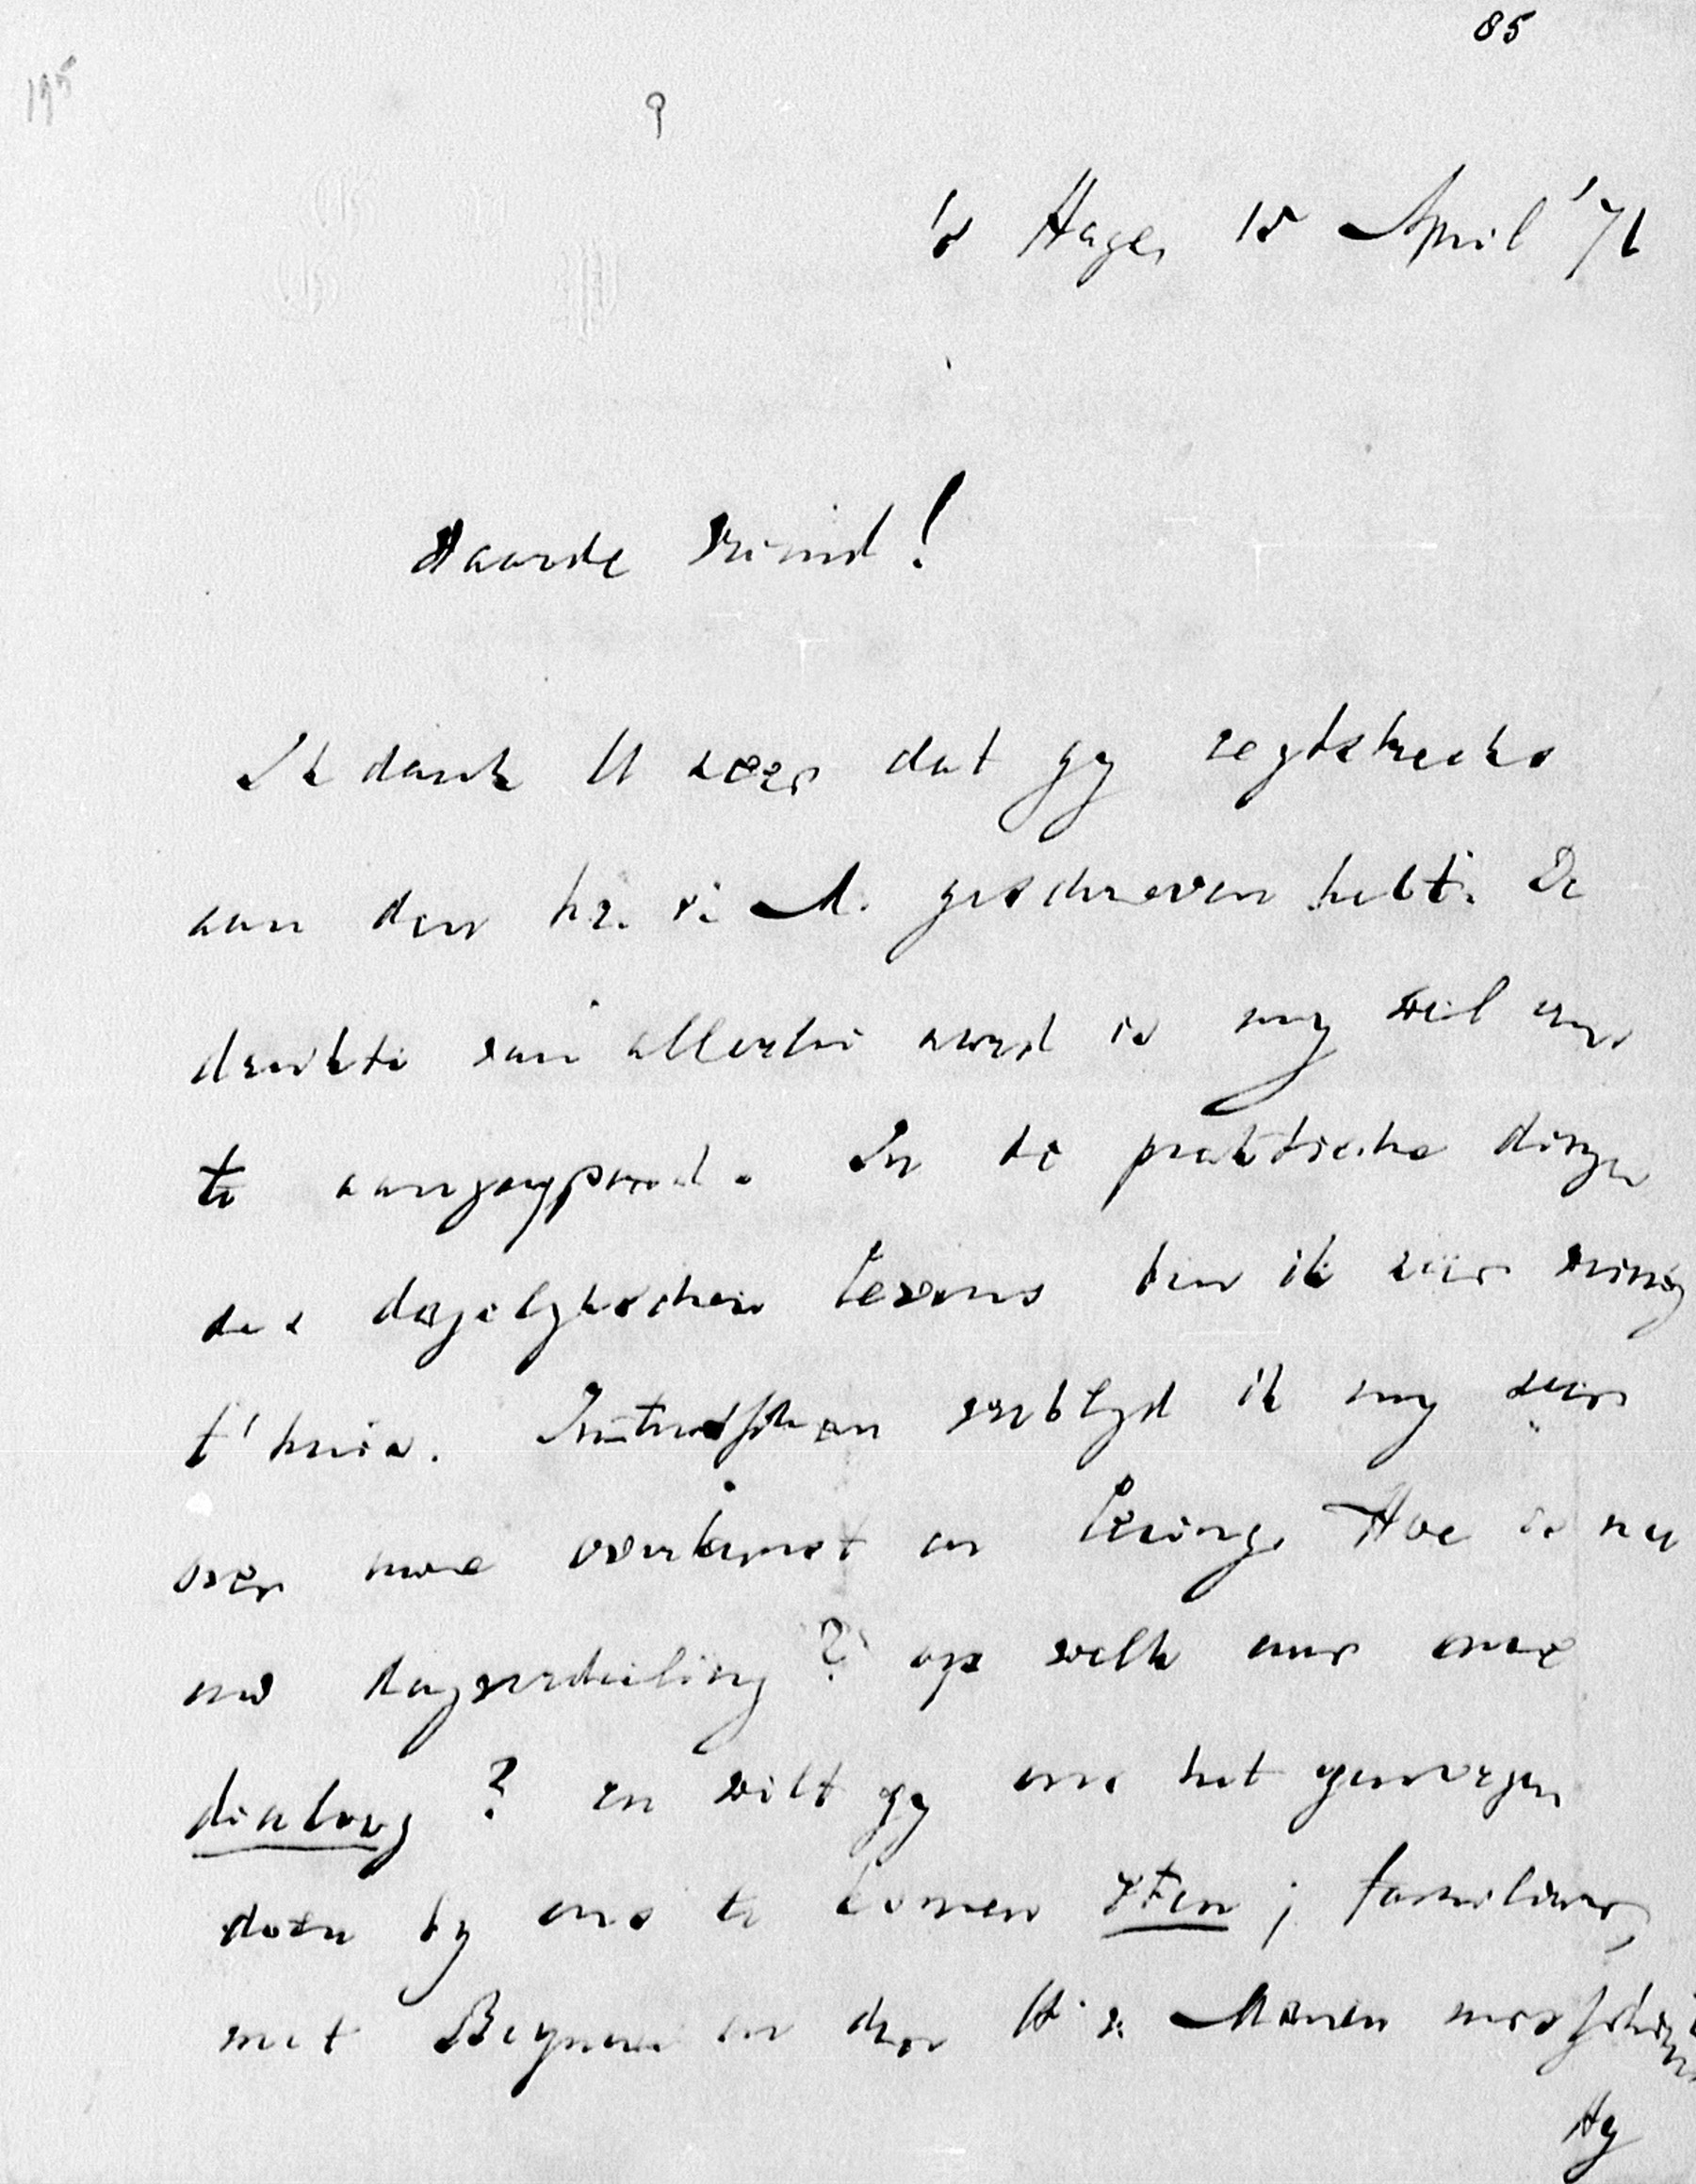 85
195
's Hage, 15 April '71
Waarde Vriend!
Ik dank U zeer dat gy regtstreeks
aan den hr. v. M. geschreven hebt. De
drukte van allerlei aard is my wel eens
te aangrypend. In de praktische dingen
des dagelykschen levens ben ik zeer weinig
t'huis. Intusschen verblyd ik my zeer
over uwe overkomst en lezing. Hoe is nu
uw dagverdeeling? op welk uur onze
dialoog? en wilt gy ons het genoegen
doen by ons te komen eten; familiaar,
met Beynen en den H. v. Manen misschien
Hy